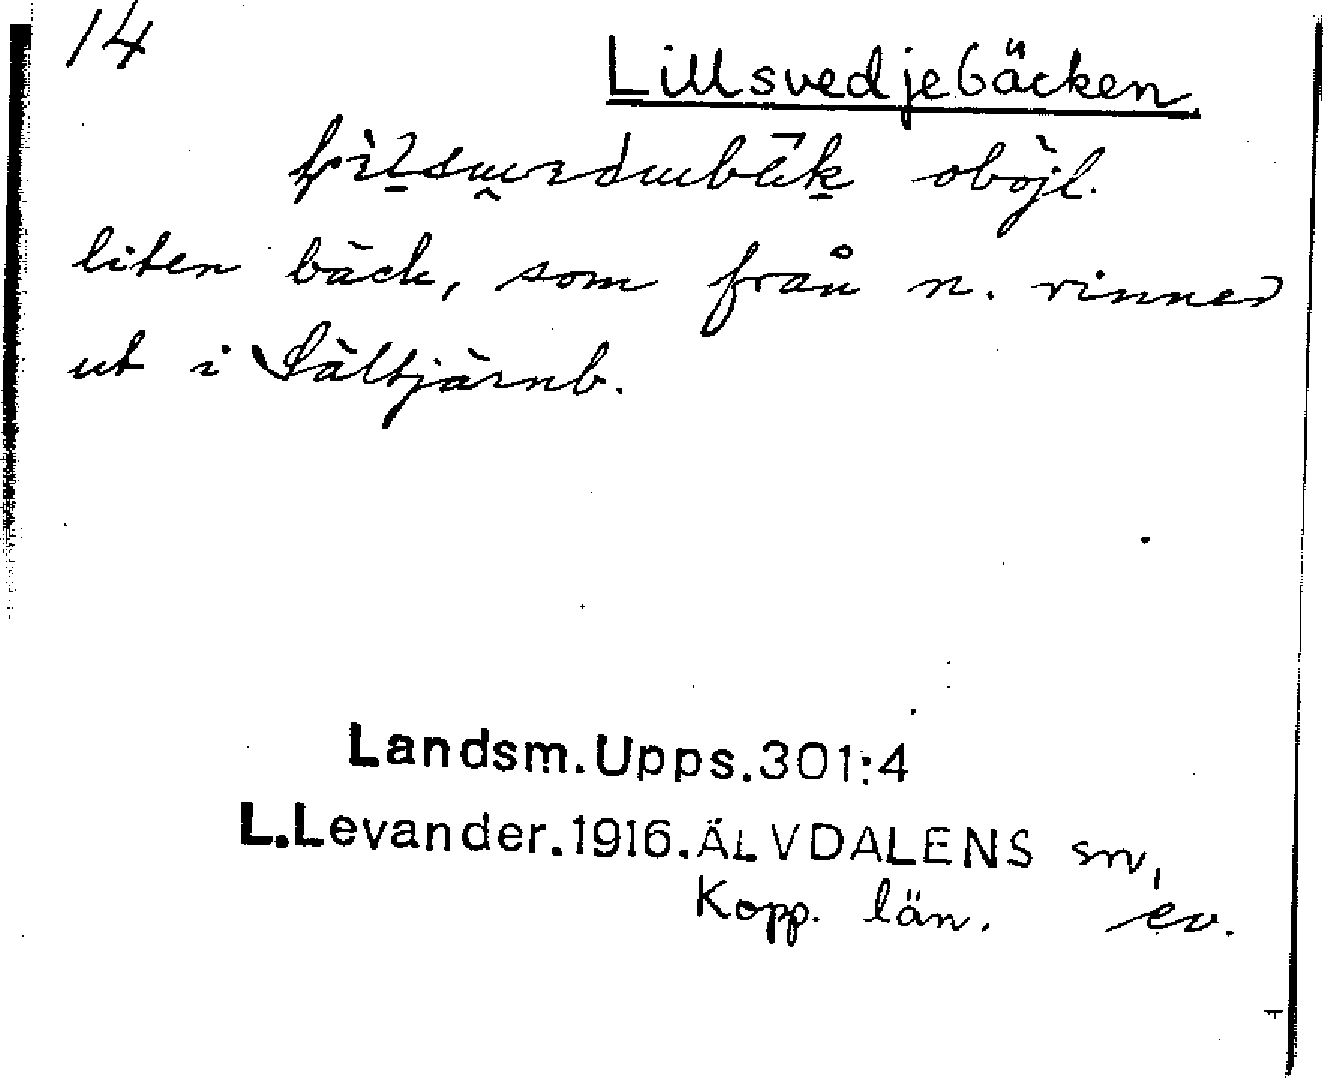 14
Lillsvedjebäcken
oböjl.
liten bäck, som från n. rinner
ut i Sältjärnb.
Landsm.Upps.301:4
L.Levander.1916.ÄLVDALENS sn,
Kopp. län. ev.